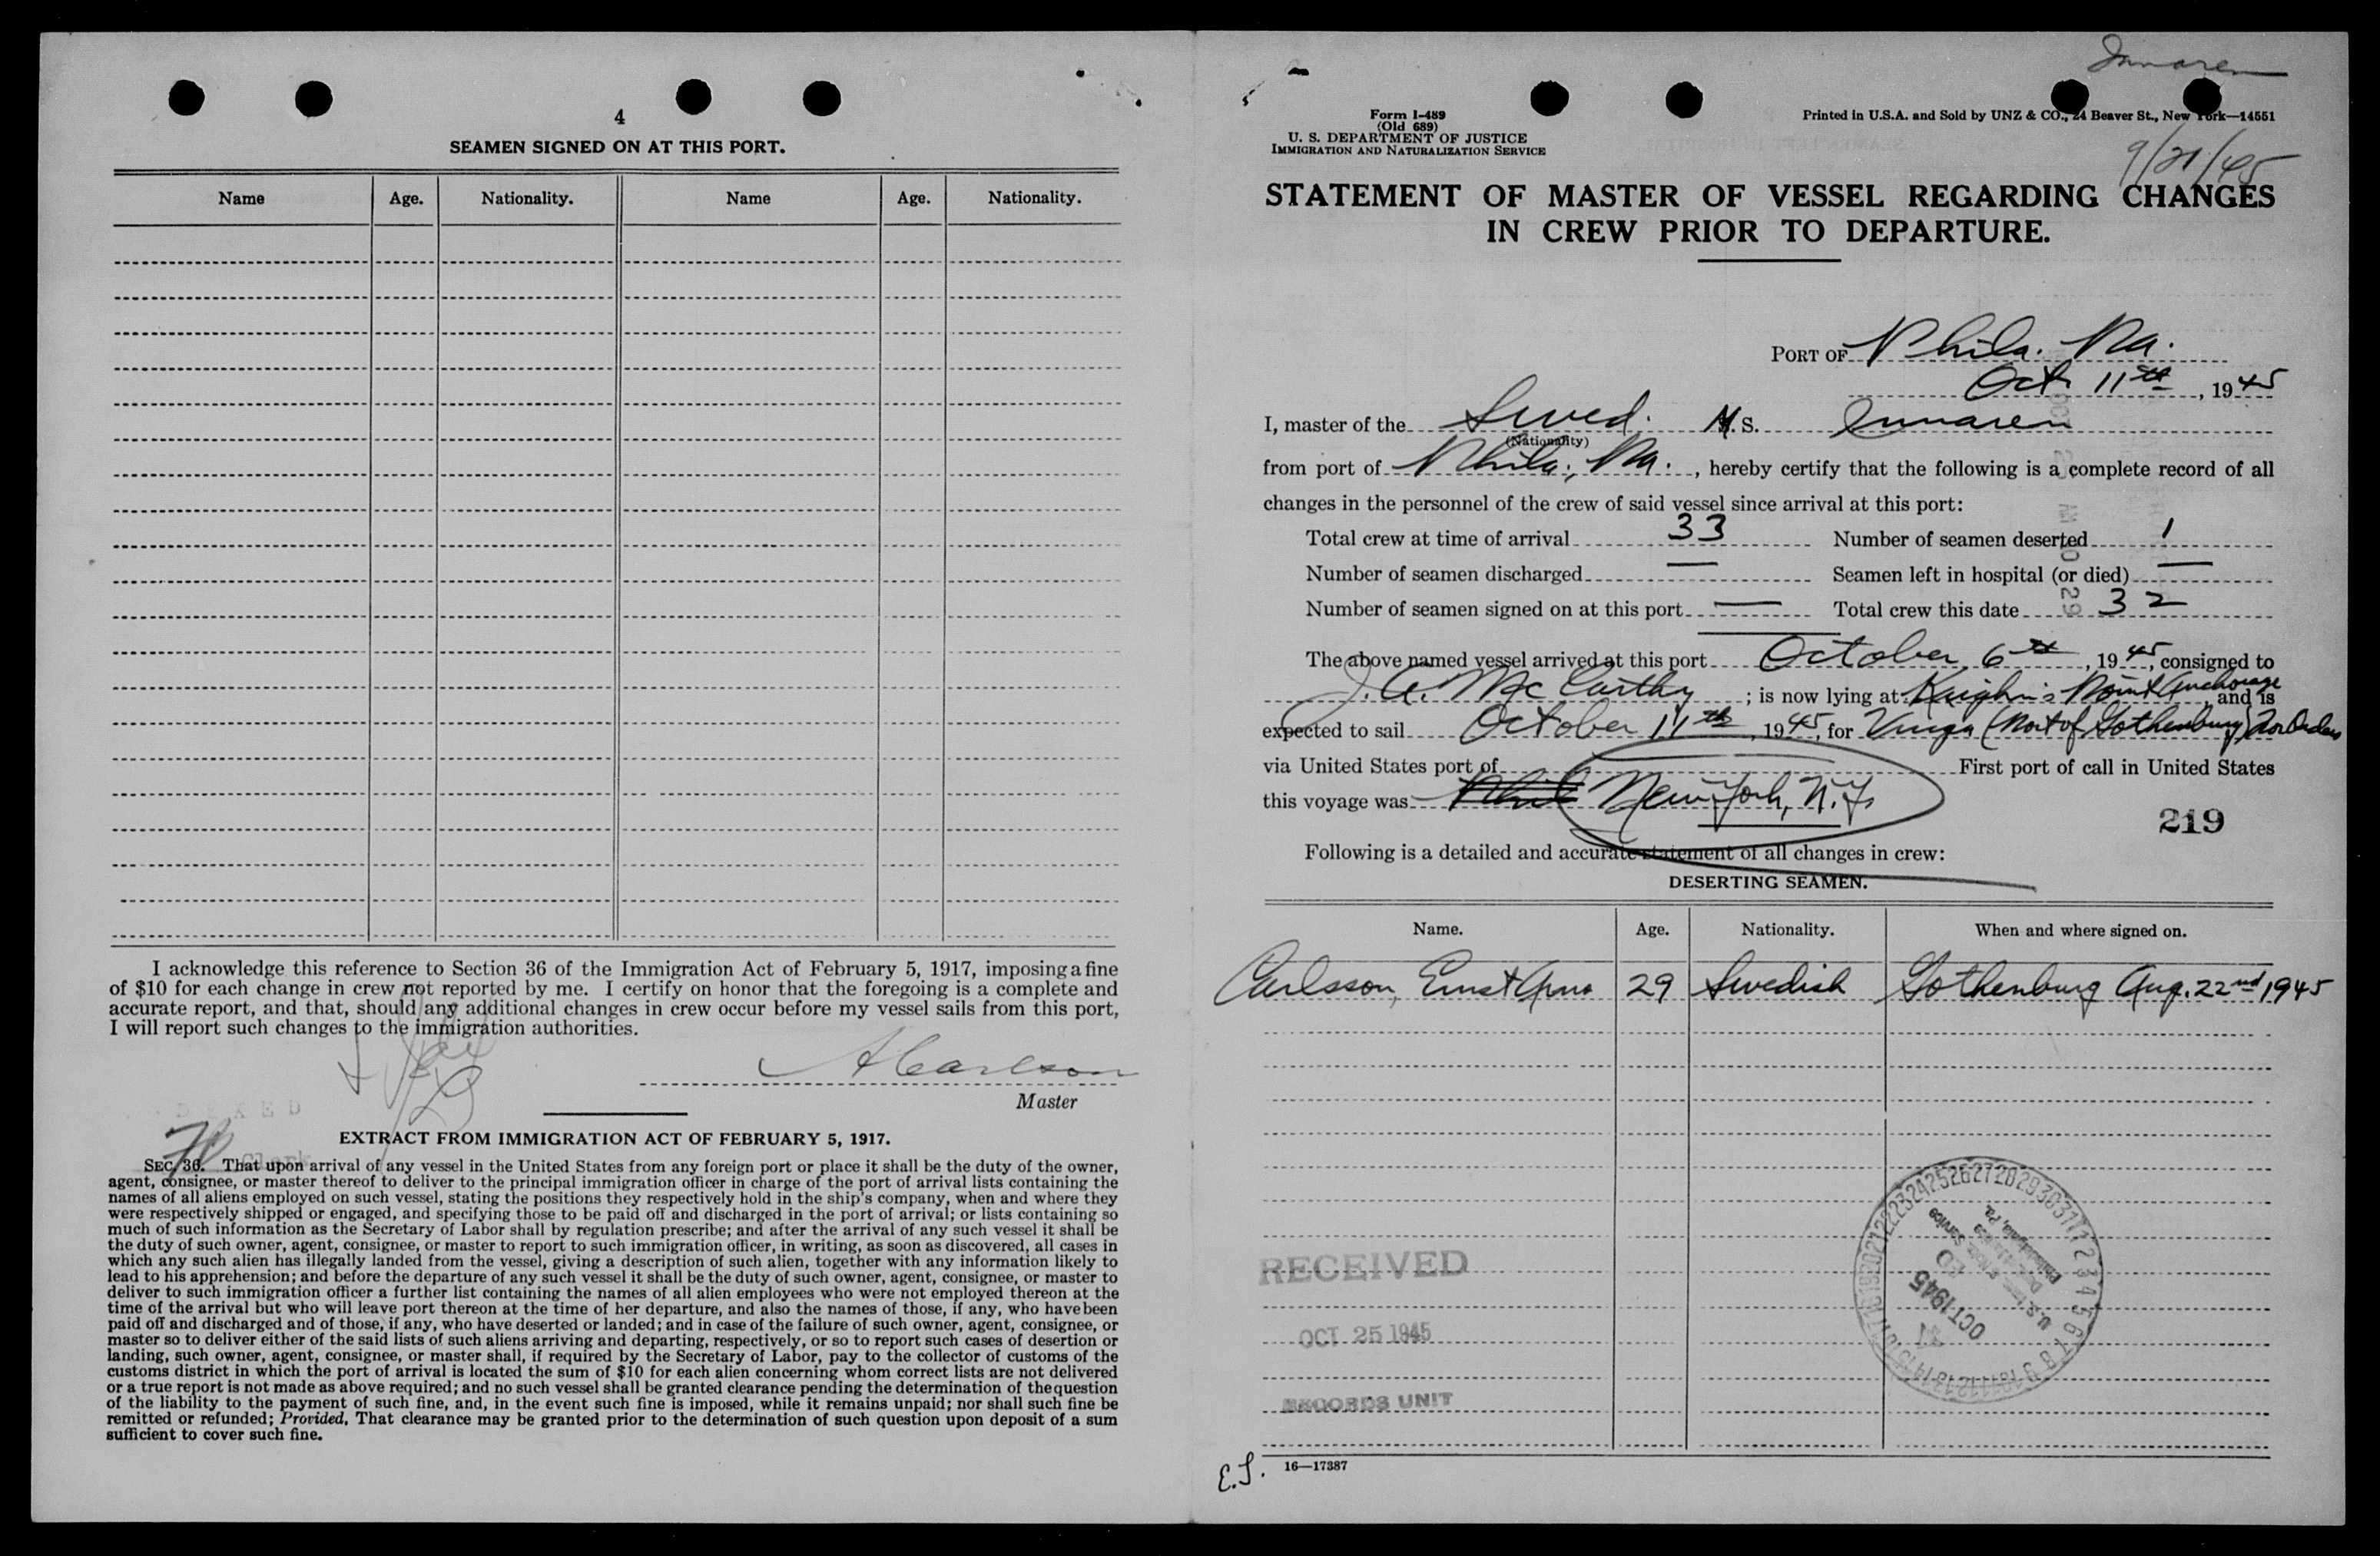 4
SEAMEN SIGNED ON AT THIS PORT.
Name Age. Nationality. Name Age. Nationality.
I acknowledge this reference to Section 36 of the Immigration Act of February 5, 1917, imposing a fine
of $10 for each change in crew not reported by me. I certify on honor that the foregoing is a complete and
accurate report, and that, should any additional changes in crew occur before my vessel sails from this port,
I will report such changes to the immigration authorities.
A Carlson
Master
EXTRACT FROM IMMIGRATION ACT OF FEBRUARY 5, 1917.
Clerk
SEC. 36. That upon arrival of any vessel in the United States from any foreign port or place it shall be the duty of the owner,
agent, consignee, or master thereof to deliver to the principal immigration officer in charge of the port of arrival lists containing the
names of all aliens employed on such vessel, stating the positions they respectively hold in the ship's company, when and where they
were respectively shipped or engaged, and specifying those to be paid off and discharged in the port of arrival; or lists containing so
much of such information as the Secretary of Labor shall by regulation prescribe; and after the arrival of any such vessel it shall be
the duty of such owner, agent, consignee, or master to report to such immigration officer, in writing, as soon as discovered, all cases in
which any such alien has illegally landed from the vessel, giving a description of such alien, together with any information likely to
lead to his apprehension; and before the departure of any such vessel it shall be the duty of such owner, agent, consignee, or master to
deliver to such immigration officer a further list containing the names of all alien employees who were not employed thereon at the
time of the arrival but who will leave port thereon at the time of her departure, and also the names of those, if any, who have been
paid off and discharged and of those, if any, who have deserted or landed; and in case of the failure of such owner, agent, consignee, or
master so to deliver either of the said lists of such aliens arriving and departing, respectively, or so to report such cases of desertion or
landing, such owner, agent, consignee, or master shall, if required by the Secretary of Labor, pay to the collector of customs of the
customs district in which the port of arrival is located the sum of $10 for each alien concerning whom correct lists are not delivered
or a true report is not made as above required; and no such vessel shall be granted clearance pending the determination of the question
of the liability to the payment of such fine, and, in the event such fine is imposed, while it remains unpaid; nor shall such fine be
remitted or refunded; Provided, That clearance may be granted prior to the determination of such question upon deposit of a sum
sufficient to cover such fine.
Innaren
Form I-489
(Old 689)
U. S. DEPARTMENT OF JUSTICE
IMMIGRATION AND NATURALIZATION SERVICE
Printed in U.S.A. and Sold by UNZ & CO., 24 Beaver St., New York—14551
9/21/45
STATEMENT OF MASTER OF VESSEL REGARDING CHANGES
IN CREW PRIOR TO DEPARTURE.
PORT OF Phila. Pa.
Oct 11th, 1945
I, master of the Swed. M.S. Innaren
(Nationality)
from port of Phila., Pa., hereby certify that the following is a complete record of all
changes in the personnel of the crew of said vessel since arrival at this port:
Total crew at time of arrival 33 Number of seamen deserted 1
Number of seamen discharged — Seamen left in hospital (or died) —
Number of seamen signed on at this port — Total crew this date 32
The above named vessel arrived at this port October 6th, 1945, consigned to
J. A. McCarthy; is now lying at Kaighn's Point Anchorage and is
expected to sail October 11th, 1945, for Vinga (Port of Gothenburg) For Orders
via United States port of First port of call in United States
this voyage was Phil New York, N.Y.
219
Following is a detailed and accurate statement of all changes in crew:
DESERTING SEAMEN.
Name. Age. Nationality. When and where signed on.
Carlsson, Ernst Arno 29 Swedish Gothenburg Aug. 22nd 1945
RECEIVED
OCT 25 1945
RECORDS UNIT
OCT 1945
Philadelphia, Pa.
E.S. 16—17387